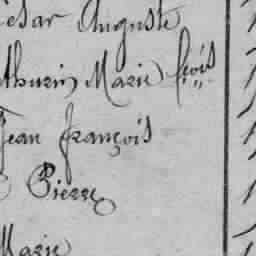 ésar Auguste
athurin Marie frçois
Jean françois
Pierre
Marie